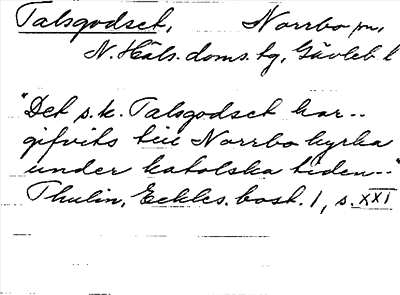 Talsgodset, Norrbo sn,
N. Häls. doms. tg, Gävleb. l
"Det s.k. Talsgodset har..
gifvits till Norrbo kyrka
under katolska tiden.."
Thulin, Eckles. bost. 1, s. XXI